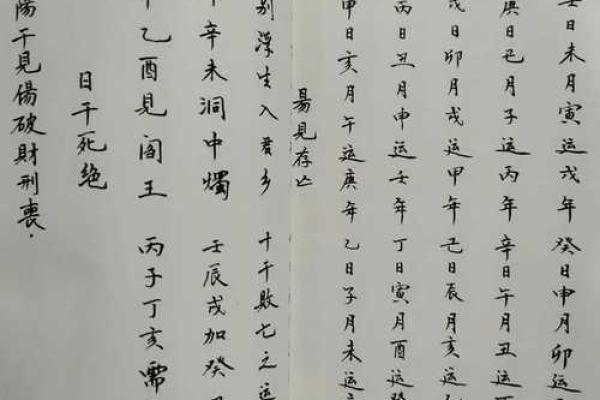 壬日未月寅运戊年 癸日申月卯运
庚日巳月子运丙年 辛日午月丑运
戊日卯月戌运甲年 己日辰月亥运
丙日丑月申运壬年 丁日寅月酉运癸
甲日亥月午运庚年 乙日子月未运
易見存亡
别浮生入君乡 十干败亡之运
辛未洞中燭 壬辰戌加癸
乙酉見阎王 丙子丁亥需
日干死绝
陽干見傷破財刑喪.